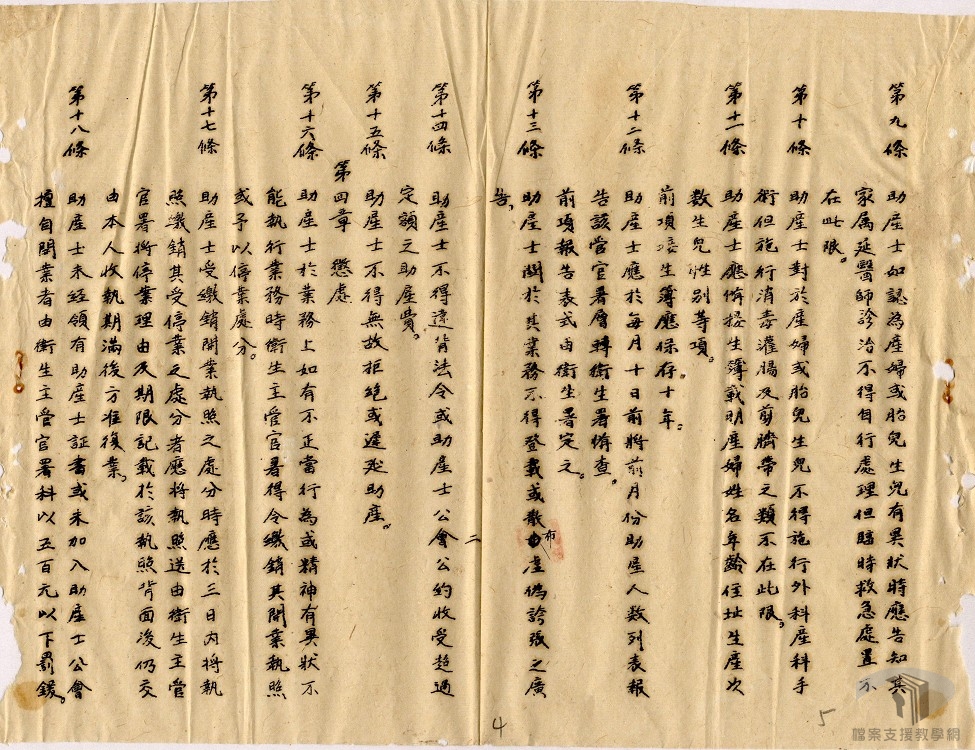 第九條　助產士如認為產婦或胎兒生兒有異狀時應告知其
家属延醫師診治不得自行處理但臨時救急處置不
在此限。
第十條　助產士對於產婦或胎兒生兒不得施行外科產科手
術但施行消毒灌腸及剪臍帶之類不在此限。
第十一條　助產士應備接生簿載明產婦姓名年齡住址生產次
數生兒性別等項。
前項接生簿應保存十年。
第十二條　助產士應於每月十日前將前月份助產人数列表報
告該管官署層轉衛生署備查。
前項報告表式由衛生署定之。
第十三條　助產士關於其業務不得登載或散布虛偽誇張之廣
告。
二
第十四條　助產士不得違背法令或助產士公會公約收受超過
定額之助產費。
第十五條　助產士不得無故拒絕或遲延助產。
第四章　懲處
第十六條　助產士於業務上如有不正當行為或精神有異狀不
能執行業務時衛生主管官署得令繳銷其開業執照
或予以停業處分。
第十七條　助產士受繳銷開業執照之處分時應於三日內將執
照繳銷其受停業之處分者應將執照送由衛生主管
官署將停業理由及期限記載於該執照背面後仍交
由本人收執期滿後方准復業。
第十八條　助產士未經領有助產士証書或未加入助產士公會
擅自開業者由衛生主管官署科以五百元以下罰鍰。
4
5
檔案支援教學網